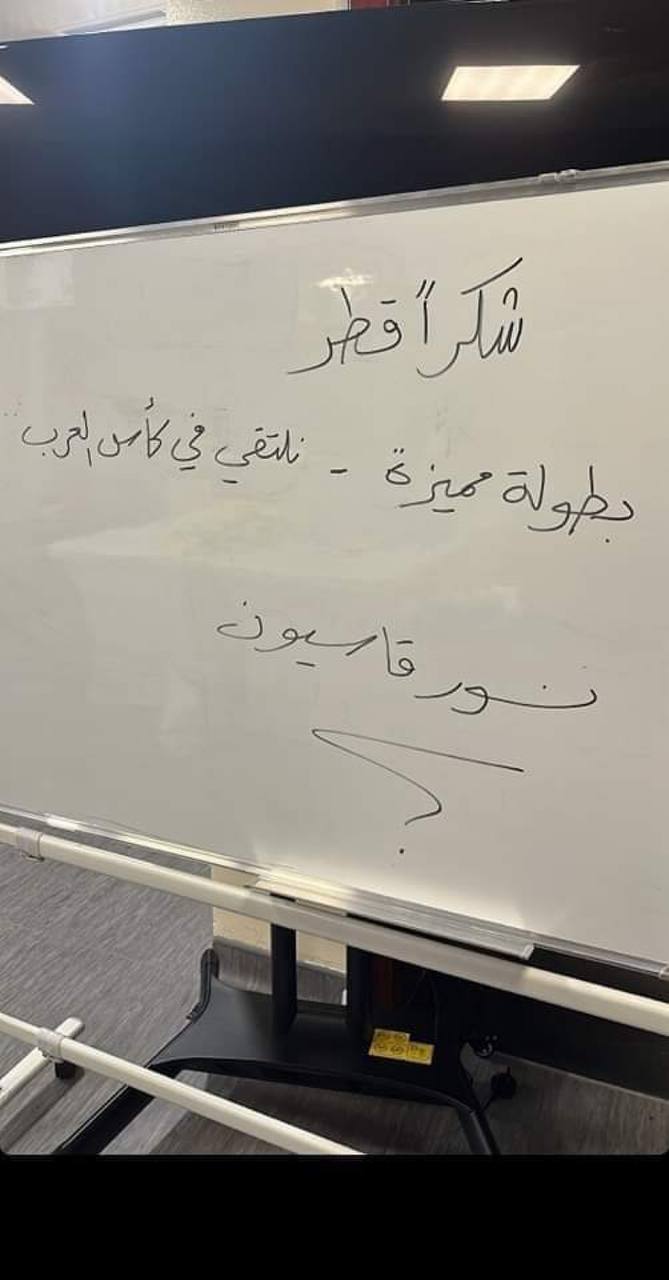 شكراً قطر
بطولة مميزة - نلتقي في كأس العرب..
نسور قاسيون